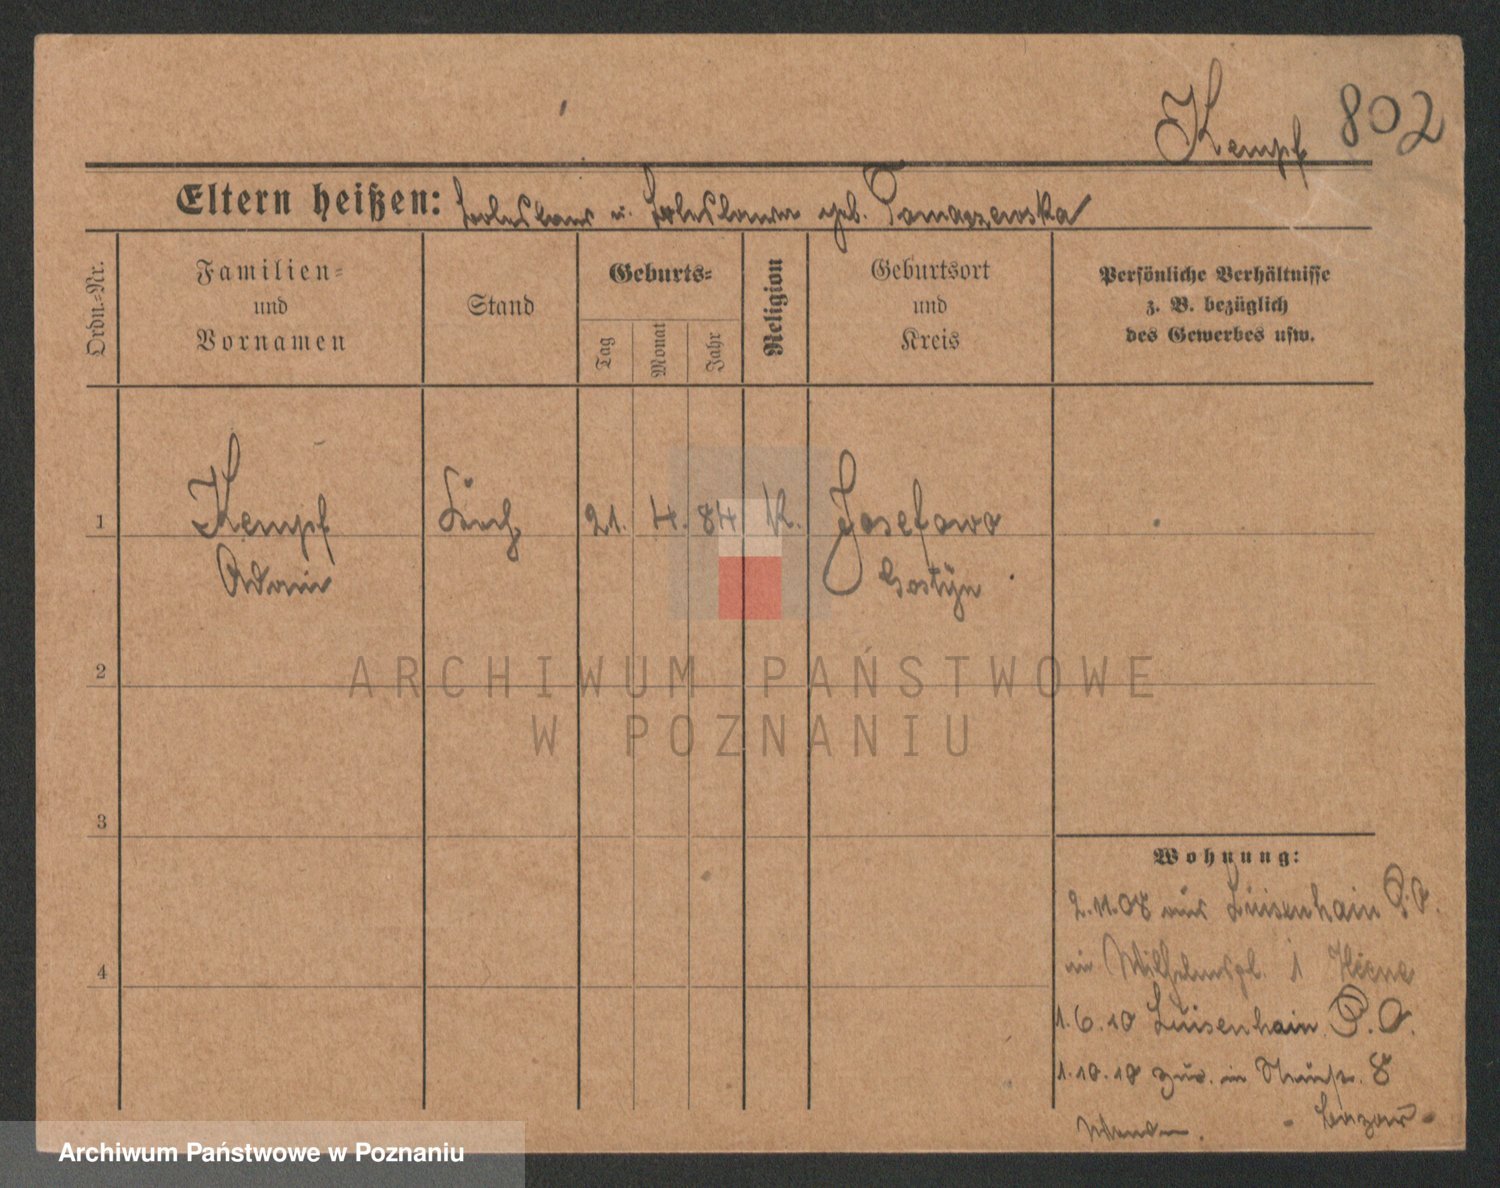 Kempf 802
Eltern heißen: Boleslaus u. Boleslawa geb. Tomaszewska
Ordn.-Nr.
Familien-
und
Vornamen
Stand
Geburts-
Tag
Monat
Jahr
Religion
Geburtsort
und
Kreis
Persönliche Verhältnisse
z. B. bezüglich
des Gewerbes usw.
1 Kempf 21. 4. 84 K. Josefowo
Adam Gostyn
2
ARCHIWUM PAŃSTWOWE
W POZNANIU
3
Wohnung:
2.11.08 aus Luisenhain P.O.
in Wilhelmspl. 1
4
1.6.10 Luisenhain P.O.
1.10.10 zur. in 8
Lazar
Archiwum Państwowe w Poznaniu